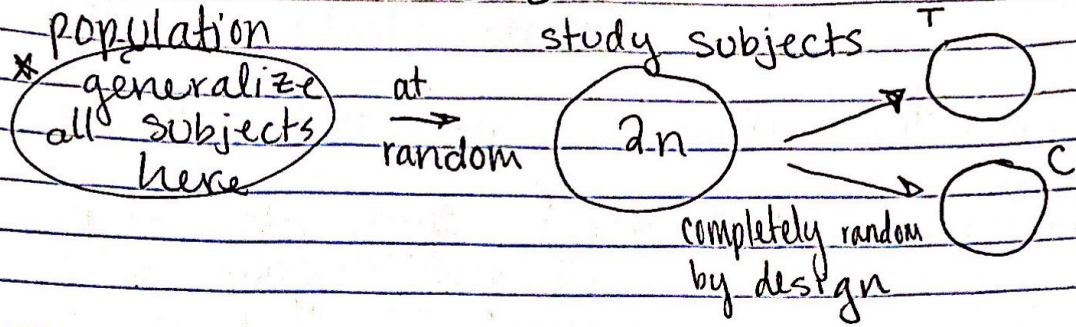 population
* generalize
all subjects
here
at
random
study subjects
2n
T
C
completely random
by design